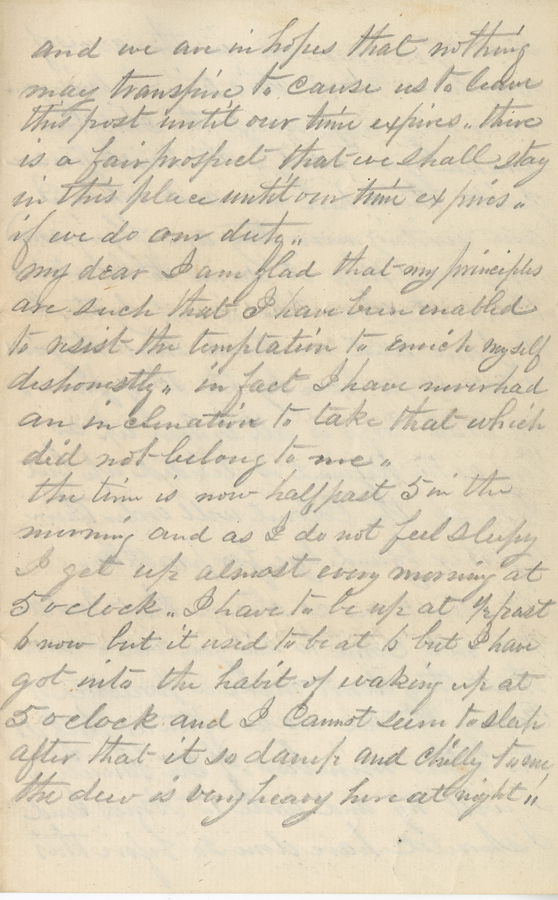 and we are in hopes that nothing
may transpire to cause us to leave
this post until our time expires,, there
is a fair prospect that we shall stay
in this place until our time expires,,
if we do our duty,,
my dear I am glad that my principles
are such that I have been enabled
to resist the temptation to enrich myself
dishonestly,, in fact I have never had
an inclination to take that which
did not belong to me,,
the time is now half past 5 in the
morning and as I do not feel sleepy
I get up almost every morning at
5 oclock,, I have to be up at 1/2 past
6 now but it used to be at 6 but I have
got into the habit of waking up at
5 oclock and I cannot seem to sleep
after that it so damp and chilly
the dew is very heavy here at night,,